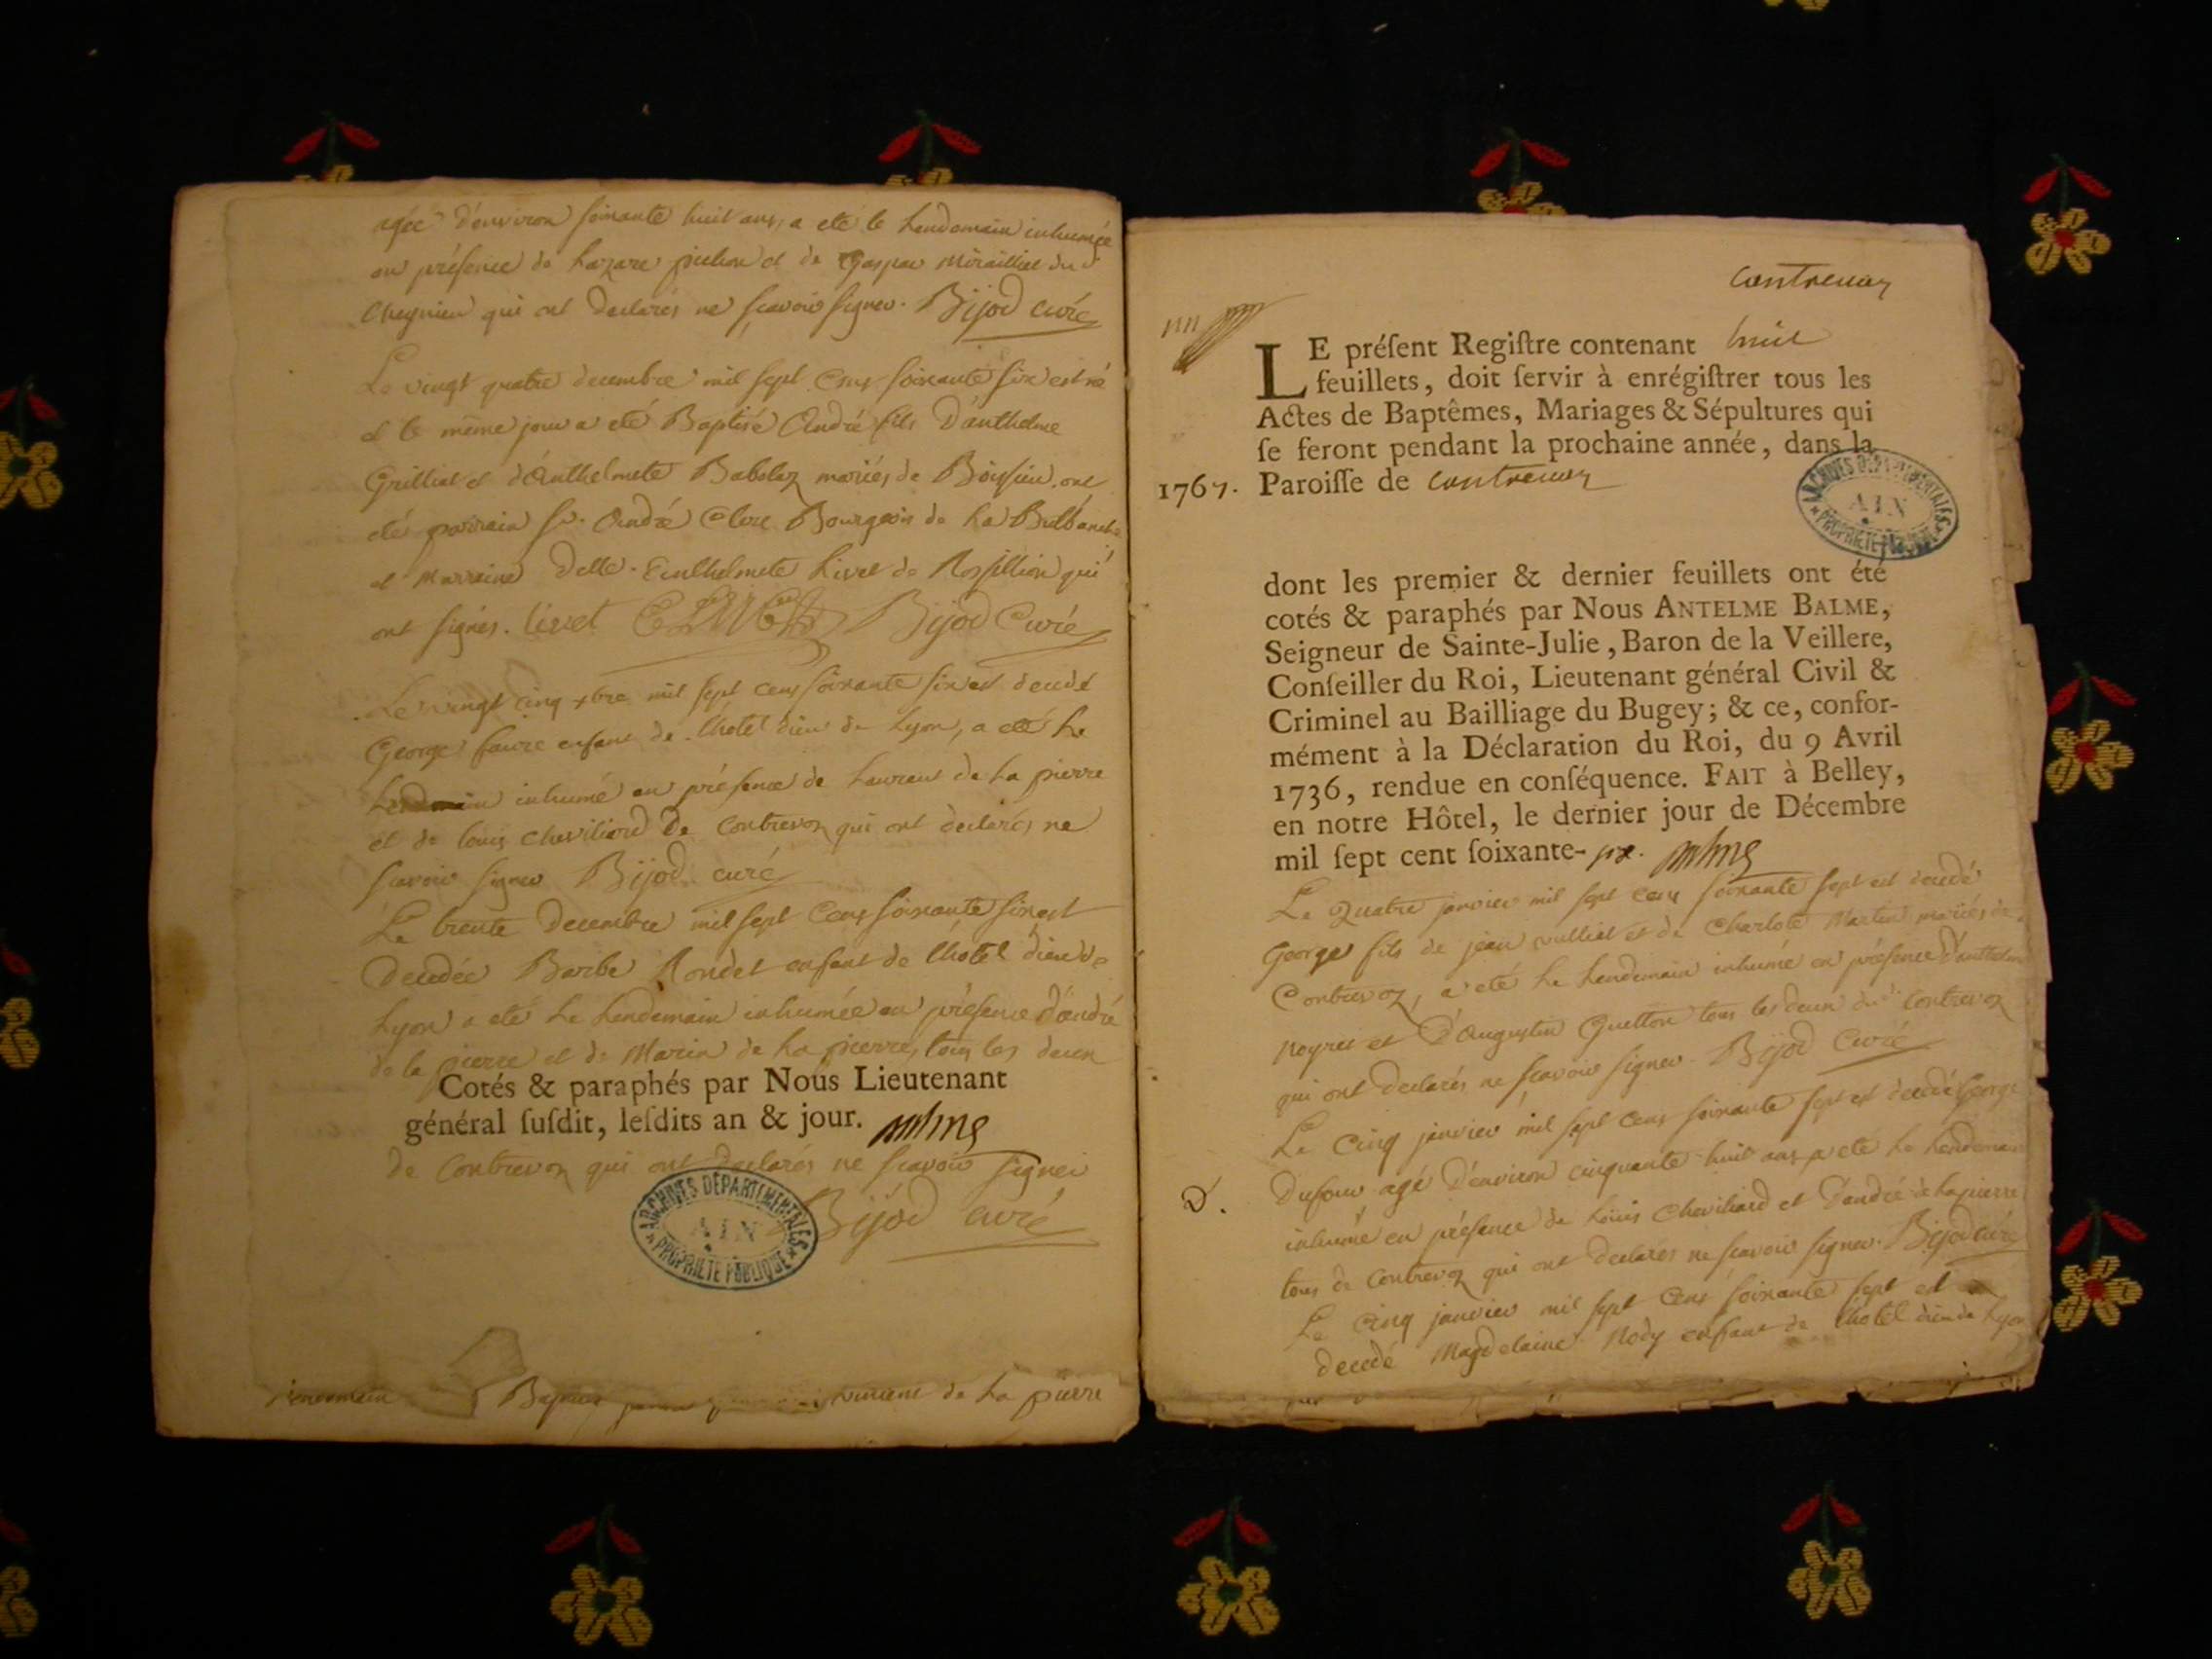 agée d'environ soixante huit ans, a eté le Lendemain inhumée
en présence de Lazare pichon et de Gaspar Mirailliet du d.
Cheynieu qui ont declarés ne sçavoir signer. Bijod curé
Le vingt quatre decembre mil sept Cens soixante six est né
et le même jour a eté Baptisé André fils D'anthelme
Grilliet et d'Anthelmete Babolaz mariés de Boissieu, ont
eté parrain sr. André Clerc Bourgeois de La Burbanche
et Marraine Delle. Enthelmete Livet de Rossillion qui
ont signés. livet Bijod Curé
Le vingt cinq xbre mil sept cens soixante six est decedé
George faure enfant de l'hotel dieu de Lyon, a eté Le
Lendemain inhumé en présence de Laurent de La pierre
et de louis Cheviliard De Contrevoz qui ont declarés ne
sçavoir signer Bijod curé
Le trente Decembre mil sept Cens soixante six est
Decedée Barbe Rondet enfant de l'hotel dieu de
Lyon a eté Le Lendemain inhumée en présence d'andré
de la pierre et de Marin de La pierre, tous les deux
Cotés & paraphés par Nous Lieutenant
général ſuſdit, leſdits an & jour.
de Contrevoz qui ont declarés ne sçavoir signer
Bijod curé
ARCHIVES DÉPARTEMENTALES
AIN
PROPRIÉTÉ PUBLIQUE
vincent de La pierre
Contrevoz
LE préſent Regiſtre contenant huit
feuillets, doit ſervir à enrégiſtrer tous les
Actes de Baptêmes, Mariages & Sépultures qui
ſe feront pendant la prochaine année, dans la
1767. Paroiſſe de Contrevoz
ARCHIVES DÉPARTEMENTALES
AIN
PROPRIÉTÉ PUBLIQUE
dont les premier & dernier feuillets ont été
cotés & paraphés par Nous ANTELME BALME,
Seigneur de Sainte-Julie, Baron de la Veillere,
Conſeiller du Roi, Lieutenant général Civil &
Criminel au Bailliage du Bugey; & ce, confor-
mément à la Déclaration du Roi, du 9 Avril
1736, rendue en conſéquence. FAIT à Belley,
en notre Hôtel, le dernier jour de Décembre
mil ſept cent ſoixante-six.
Le Quatre janvier mil sept cens soixante sept est decedé
George fils de jean vulliet et de Charlote Martin mariés de
Contrevoz, a eté Le Lendemain inhumé en présence d'anthelme
Noyret et D'Augustin Guetton tous les deux du d. Contrevoz
qui ont declarés ne sçavoir signer. Bijod Curé
Le Cinq janvier mil sept Cens soixante sept est decedé George
Dufour agé D'environ cinquante huit ans, a eté Le Lendemain
inhumé en présence de Louis Cheviliard et D'andré de La pierre
tous de Contrevoz qui ont declarés ne sçavoir signer. Bijod curé
Le Cinq janvier mil sept Cens soixante sept est
decedé Magdelaine Nody enfant de l'hotel dieu de Lyon